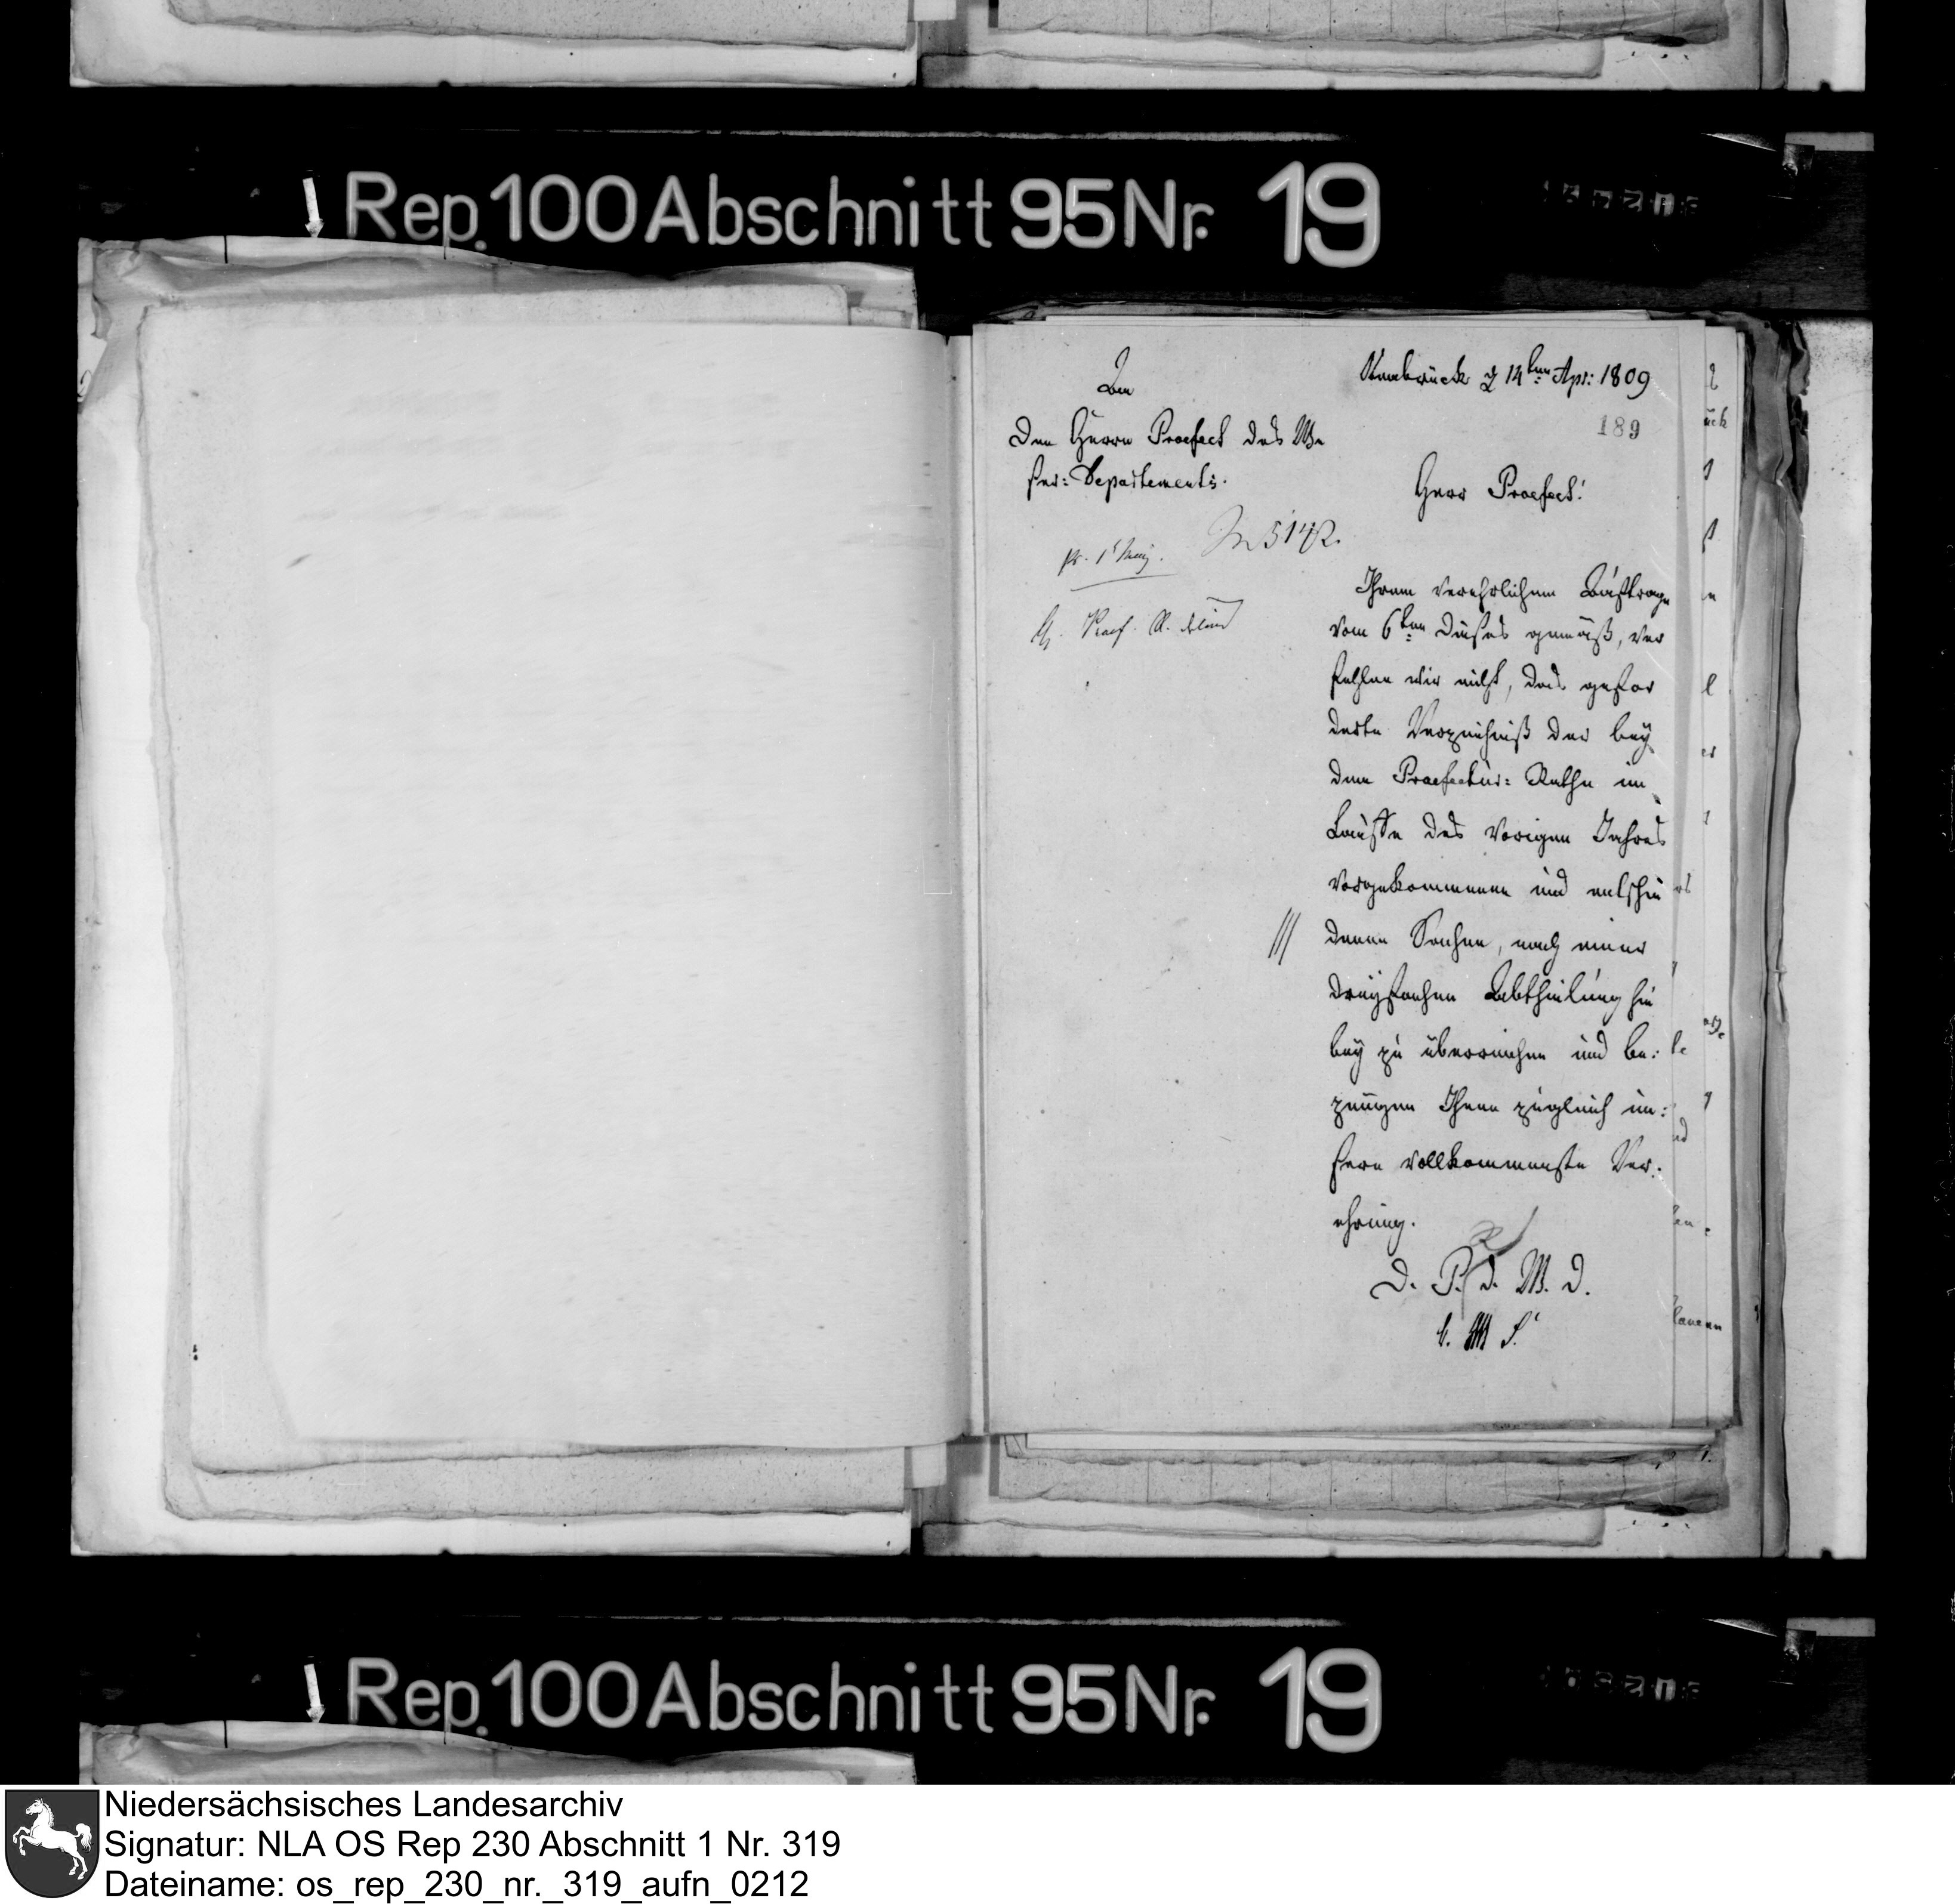 Rep. 100 Abschnitt 95 Nr. 19
An
den Herrn Praefect des We
ser: Departements.
Osnabrück d 14ten Apr: 1809
189
Herr Praefect!
N 5142.
pr.
Praef.
Ihrem verehrlichem Auftrage
vom 6ten dieses gemäß, ver
fehlen wir nicht, das gefor
derte Verzeichniß der bey
dem Praefectur: Rathe im
Laufe des vorigen Jahres
vorgekommenen und entschie
denen Sachen, nach einer
dreyfachen Abtheilung hie
bey zu überreichen und be:
zeugen Ihnen zugleich un:
sere vollkommenste Ver:
ehrung.
D. P. d. W. D.
Rep. 100 Abschnitt 95 Nr. 19
Niedersächsisches Landesarchiv
Signatur: NLA OS Rep 230 Abschnitt 1 Nr. 319
Dateiname: os_rep_230_nr._319_aufn_0212